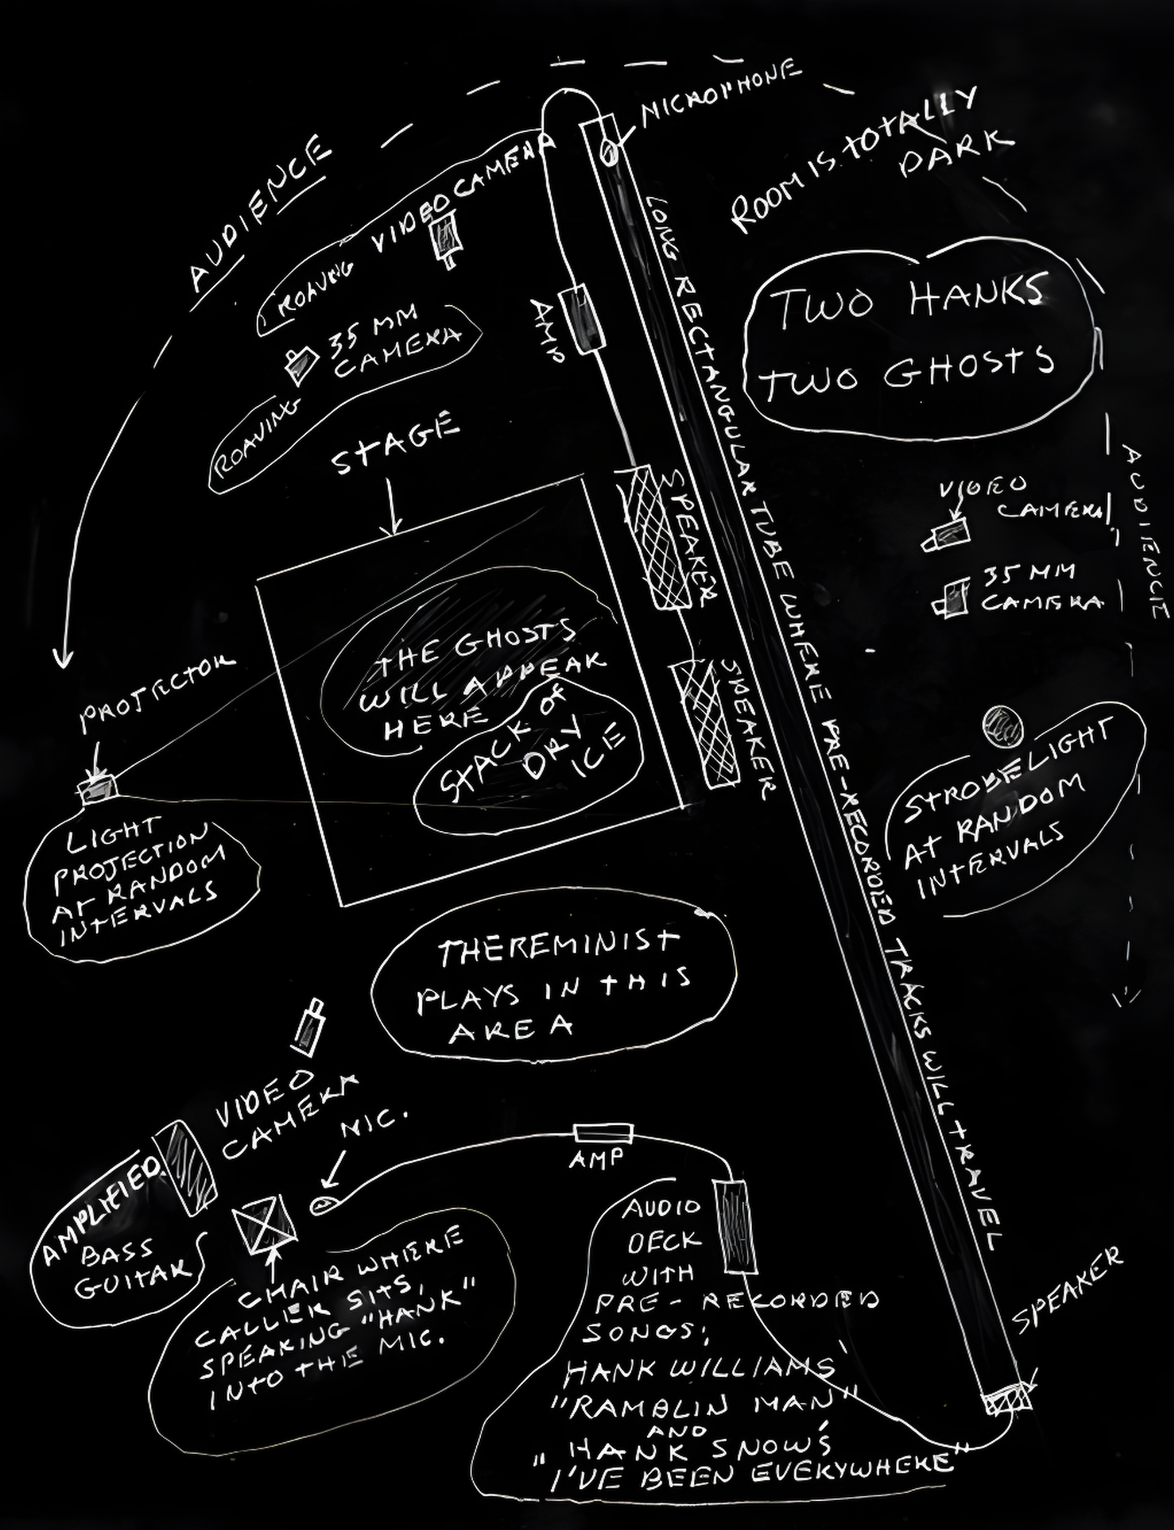 MICROPHONE
ROOM IS TOTALLY
DARK
AUDIENCE
ROAVING VIDEO CAMERA
35 MM
CAMERA
ROAVING
AMP
LONG RECTANGULAR TUBE WHERE PRE-RECORDED TRACKS WILL TRAVEL
TWO HANKS
TWO GHOSTS
STAGE
SPEAKER
VIDEO
CAMERA
AUDIENCE
35 MM
CAMERA
THE GHOSTS
WILL APPEAR
HERE
STACK OF
DRY
ICE
SPEAKER
PROJECTOR
STROBE LIGHT
AT RANDOM
INTERVALS
LIGHT
PROJECTION
AT RANDOM
INTERVALS
THEREMINIST
PLAYS IN THIS
AREA
VIDEO
CAMERA
MIC.
AMP
AMPLIFIED
BASS
GUITAR
CHAIR WHERE
CALLER SITS,
SPEAKING "HANK"
INTO THE MIC.
AUDIO
DECK
WITH
PRE-RECORDED
SONGS;
HANK WILLIAMS'
"RAMBLIN MAN"
AND
"HANK SNOW'S
I'VE BEEN EVERYWHERE"
SPEAKER